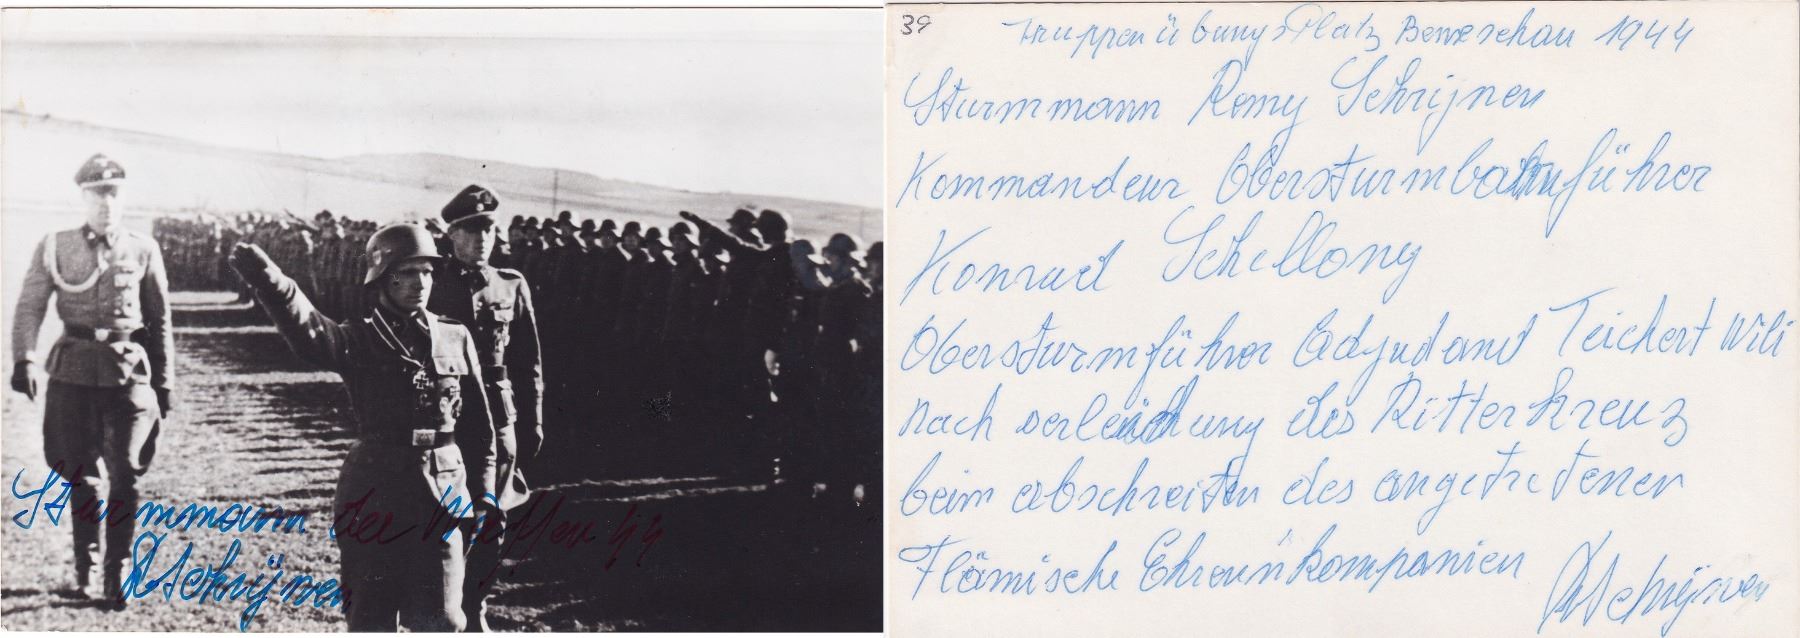 Sturmmann der Waffen SS
RSchrijnen
39
Truppenübungsplatz Beneschau 1944
Sturmmann Remy Schrijnen
Kommandeur Obersturmbannführer
Konrad Schellong
Obersturmführer Adyudand Teichert Wili
nach verleichung des Ritterkreuz
beim abschreiten des angetretener
Flämische Ehrenkompanien
RSchrijnen